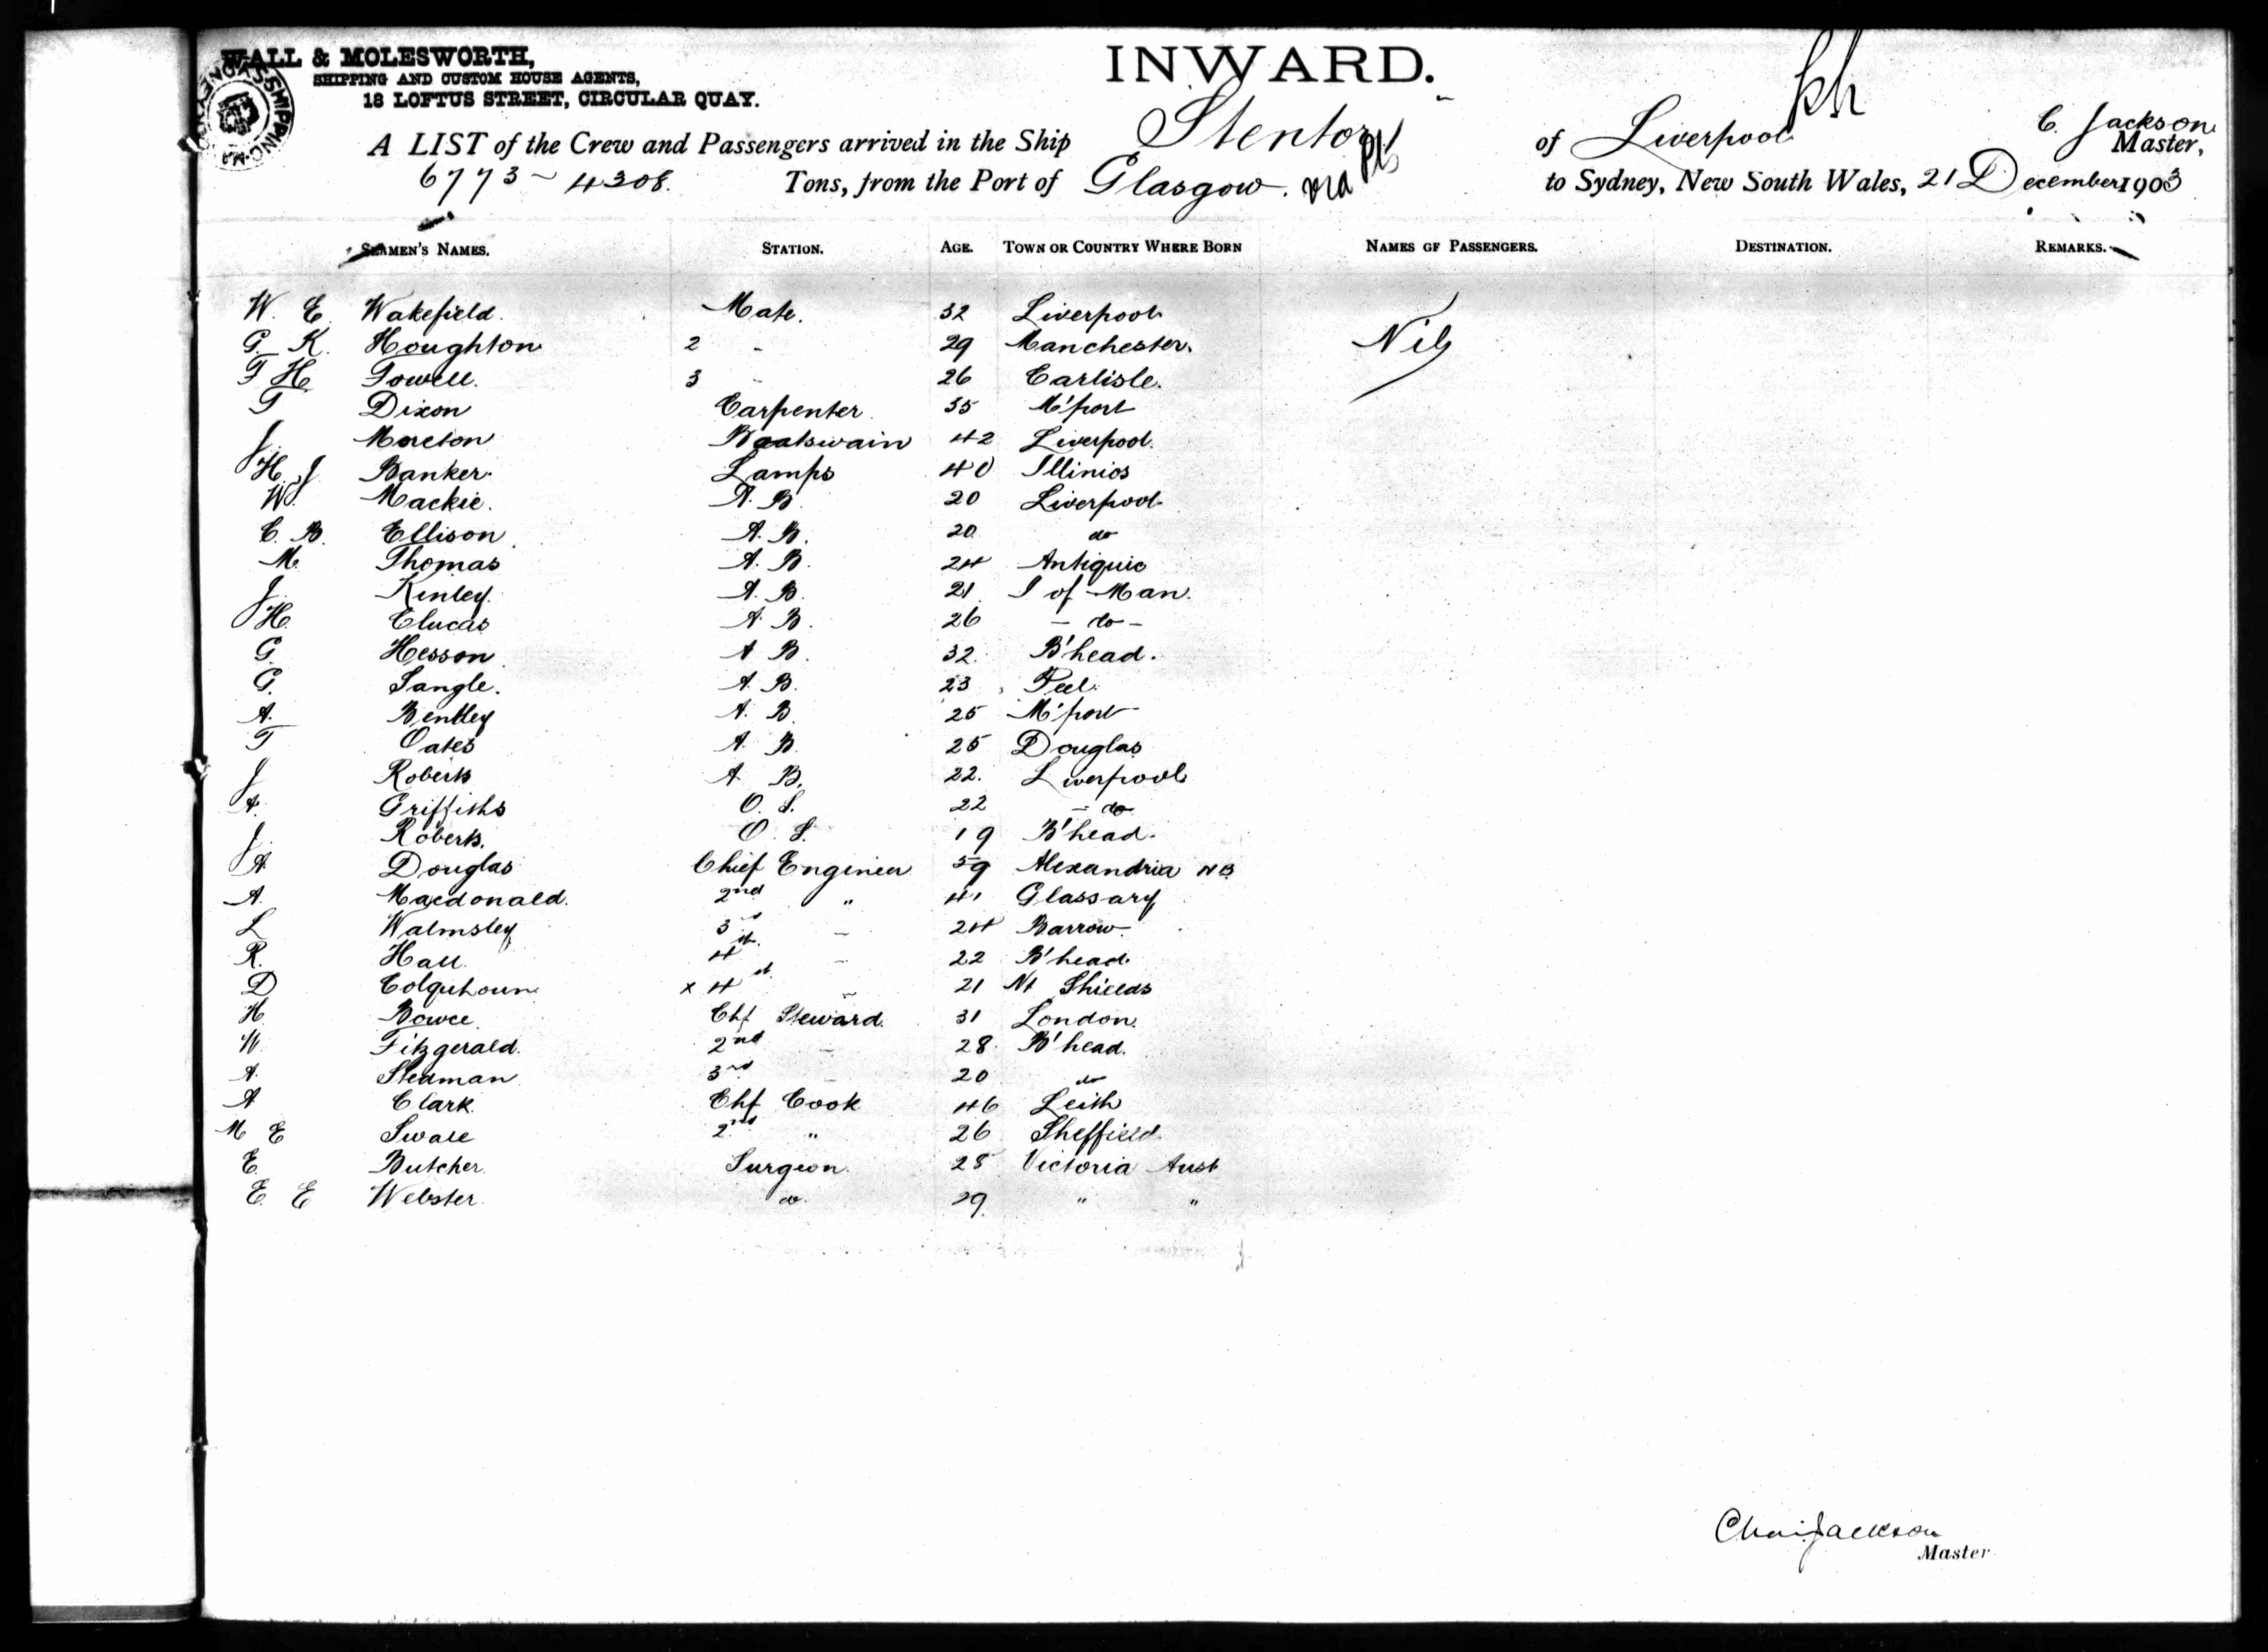 WALL & MOLESWORTH,
SHIPPING AND CUSTOM HOUSE AGENTS,
18 LOFTUS STREET, CIRCULAR QUAY.
INWARD.
A LIST of the Crew and Passengers arrived in the Ship Stentor of Liverpool C. Jackson Master,
6773 ~ 4308. Tons, from the Port of Glasgow. via pts to Sydney, New South Wales, 21 December 1903
SEAMEN'S NAMES. STATION. AGE. TOWN OR COUNTRY WHERE BORN NAMES OF PASSENGERS. DESTINATION. REMARKS.
W. E. Wakefield. Mate. 32 Liverpool
G. K. Houghton 2 - 29 Manchester. Nil
T H Towell. 3 - 26 Carlisle.
T Dixon Carpenter. 35 M'port
J. Moreton Boatswain 42 Liverpool.
H. J. Banker. Lamps 40 Illinios
W. Mackie. A. B. 20 Liverpool
C. B. Ellison. A. B. 20 do
M. Thomas A. B. 24 Antiquie
J. Kinley. A. B. 21. I of Man.
H. Clucas A. B. 26 - do -
G. Hesson. A B. 32. B'head.
G. Sangle. A. B. 23 Peel.
A. Bentley A. B. 25 M'port
T Oates A. B. 25 Douglas
J Roberts A B. 22. Liverpool
A. Griffiths O. S. 22 - do
J. Roberts. O. S. 19 B'head.
A. Douglas Chief Engineer 59 Alexandria NB
A. Macdonald. 2nd " 41 Glassary
L Walmsley 3rd - 24 Barrow.
R. Hall. 4th. - 22 B'head.
D Colquhoun x 4th - 21 Nt Shields
H. Bowce. Chf Steward. 31 London.
W. Fitzgerald. 2nd - 28. B'head.
A. Stedman 3rd 20 do
A Clark. Chf Cook 46 Leith
M E Swale 2nd " 26 Sheffield.
E. Butcher. Surgeon. 28 Victoria Aust
E. E Webster. do. 29. " "
Chas. Jackson
Master